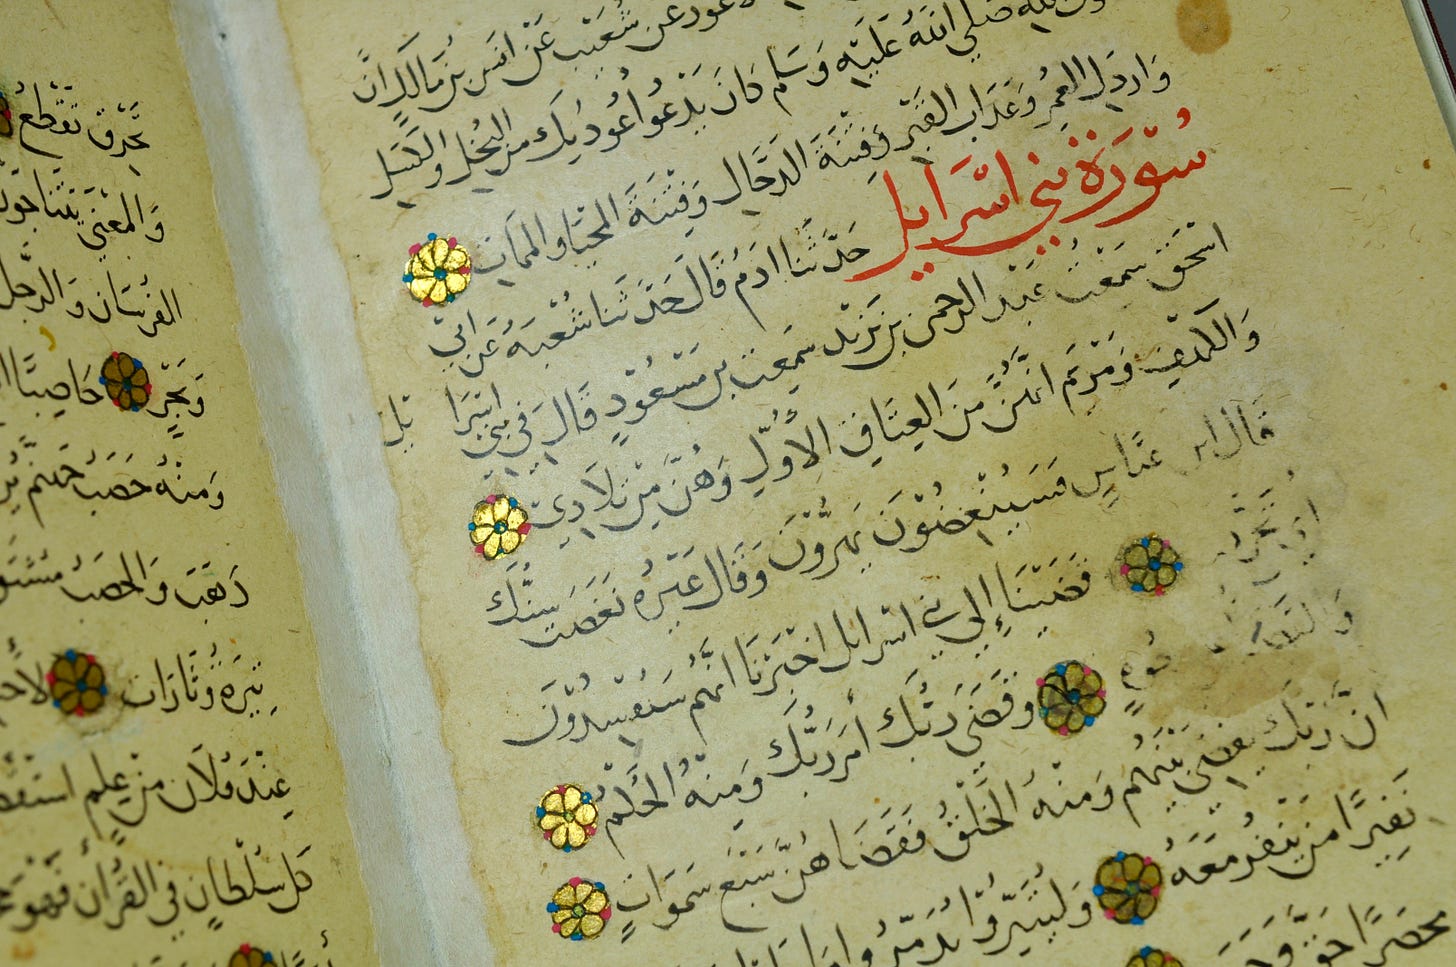 عن شعيب عن انس بن مالك ان
الله صلى الله عليه وسلم كان يدعوا اعوذ بك من البخل والكسل
وارذل العمر وعذاب القبر وفتنة الدجال وفتنة المحيا والممات
سورة بني اسرايل حدثنا ادم قال حدثنا شعبة عن ابي
اسحق سمعت عبد الرحمن بن يزيد سمعت بن مسعود قال في بني اسرا يل
والكهف ومريم انهن من العتاق الاول وهن من تلادي
قال ابن عباس فسينغضون يهزون وقال غيره نغضت سنك
اي تحركت قضينا إلى بني اسرايل اخبرنا انهم سيفسدون
والقضا وجوه وقضى ربك أمر ربك ومنه الحكم
ان ربك يقضي بينهم ومنه الخلق فقضاهن سبع سموات
نفيرا من ينفر معه وليتبروا يدمروا
محصرا حق
تخرق تقطع
والمعنى يتناجون
الفرسان والرجل
ويجر حاصبا
ومنه حصب جهنم
ذهب والحصب
تيرة وتارات
عند فلان من علم
كل سلطان في القرآن فهو